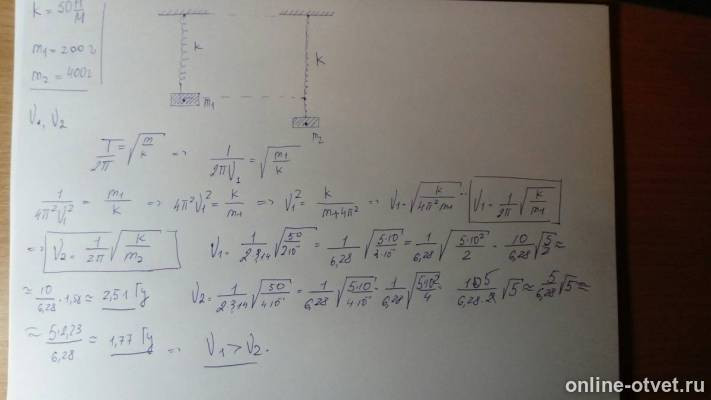 k = 50 Н/м
m₁ = 200 г
m₂ = 400 г
ν₁, ν₂
k
m₁
k
m₂
T/2π = √(m/k) => 1/(2πν₁) = √(m₁/k)
1/(4π²ν₁²) = m₁/k => 4π²ν₁² = k/m₁ => ν₁² = k/(m₁4π²) => ν₁ = √(k/(4π²m₁)) ν₁ = 1/2π √(k/m₁)
=> ν₂ = 1/2π √(k/m₂) ν₁ = 1/(2·3,14) √(50/2·10⁻¹) = 1/6,28 √(5·10/2·10⁻¹) = 1/6,28 √(5·10²/2) = 10/6,28 √(5/2) ≈
≈ 10/6,28 · 1,58 ≈ 2,51 Гц ν₂ = 1/(2·3,14) √(50/4·10⁻¹) = 1/6,28 √(5·10/4·10⁻¹) = 1/6,28 √(5·10²/4) = 10 5/(6,28·2) √5 ≈ 5/6,28 √5 ≈
≈ 5·2,23/6,28 ≈ 1,77 Гц => ν₁ > ν₂.
online-otvet.ru